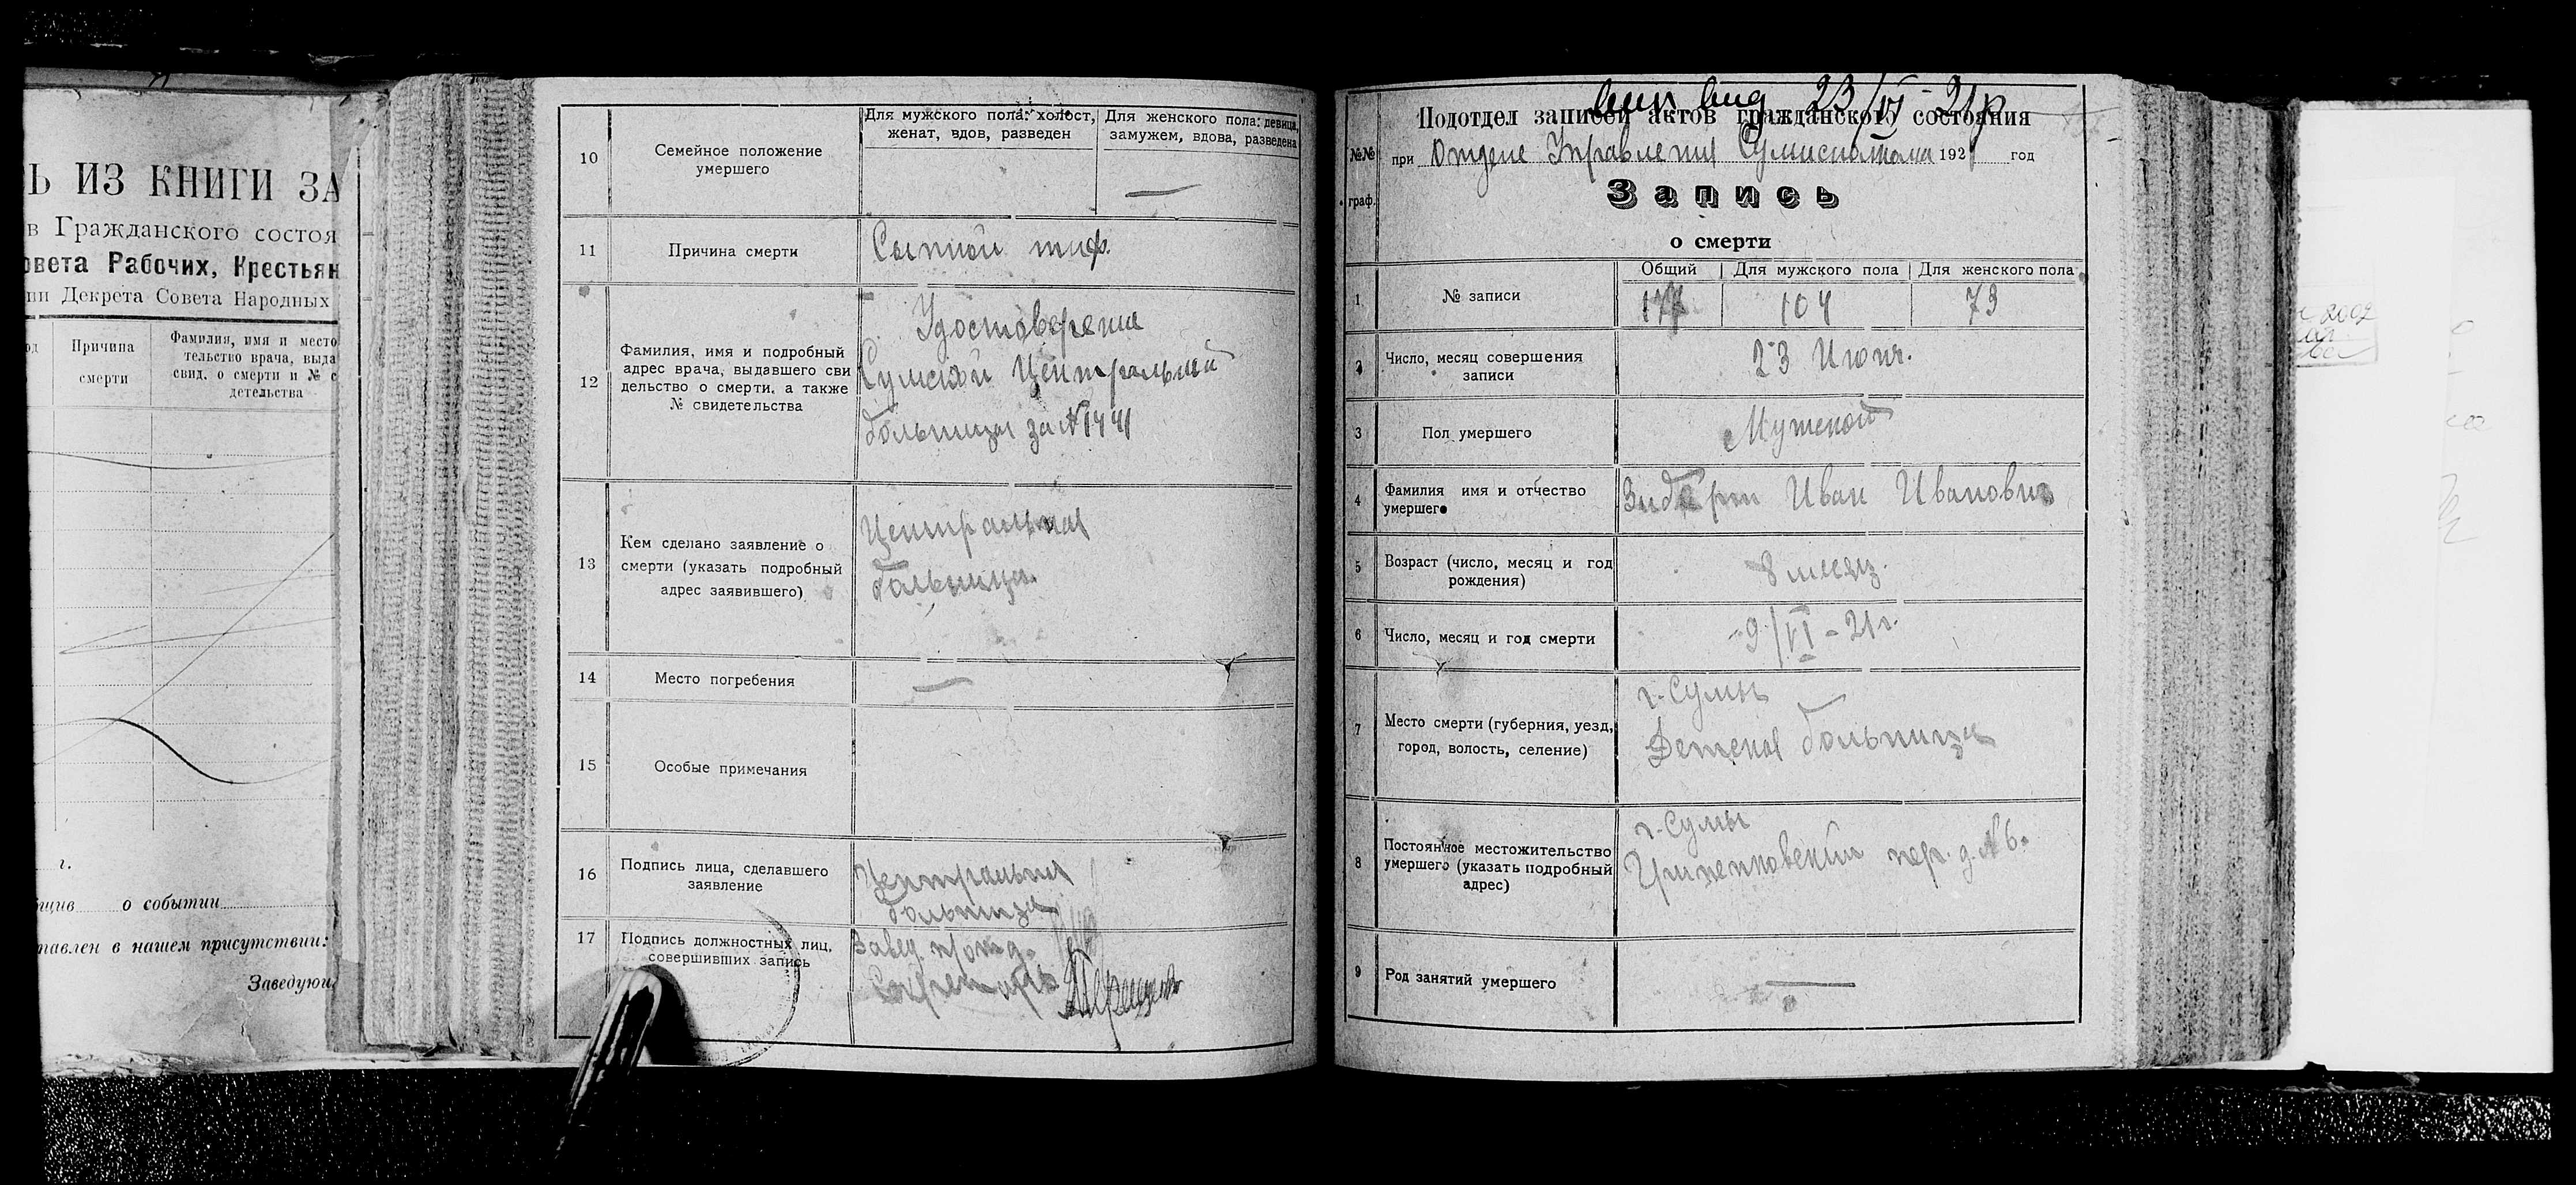 Ь ИЗ КНИГИ ЗА
в Гражданского состоя
овета Рабочих, Крестьян
ии Декрета Совета Народных
Причина
смерти
Фамилия, имя и место
тельство врача, выда
свид. о смерти и № с
детельства
г.
о событии
тавлен в нашем присутствии:
Заведующ
10
Семейное положение
умершего
Для мужского пола: холост,
женат, вдов, разведен
Для женского пола: девица,
замужем, вдова, разведена
—
11
Причина смерти
Сыпной тиф.
12
Фамилия, имя и подробный
адрес врача, выдавшего сви
дельство о смерти, а также
№ свидетельства
Удостоверение
Сумской Центральной
больницы за №1441
13
Кем сделано заявление о
смерти (указать подробный
адрес заявившего)
Центральная
больница.
14
Место погребения
—
15
Особые примечания
16
Подпись лица, сделавшего
заявление
Центральная
больница
17
Подпись должностных лиц,
совершивших запись
Завед. п/отд.
Секретарь
23/VI-21г
Подотдел записей актов гражданского состояния
№№
граф.
при Отделе Управления Сумисполкома 1921 год
Запись
о смерти
1
№ записи
Общий
Для мужского пола
Для женского пола
177
104
73
2
Число, месяц совершения
записи
23 Июня.
3
Пол умершего
Мужской
4
Фамилия имя и отчество
умершего
Иван Иванович
5
Возраст (число, месяц и год
рождения)
8 месяц.
6
Число, месяц и год смерти
9/VI-21г.
7
Место смерти (губерния, уезд,
город, волость, селение)
г. Сумы
Детская больница
8
Постоянное местожительство
умершего (указать подробный
адрес)
г. Сумы
пер. д. №6.
9
Род занятий умершего
—